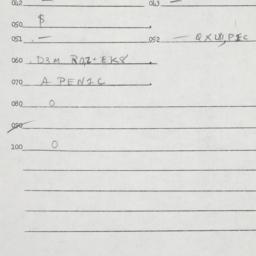 042 — 043 —
050 $
051 . — 052 — QXW,PIC
060 . D3M RAZ-EK8
070 A PEN1C
080 0
090
100 0